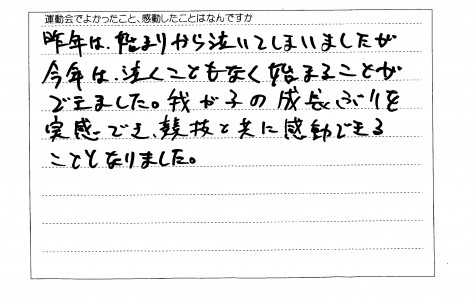 運動会でよかったこと、感動したことはなんですか
昨年は、始まりから泣いてしまいましたが
今年は、泣くこともなく始まることが
できました。我が子の成長ぶりを
実感でき、競技と共に感動できる
こととなりました。